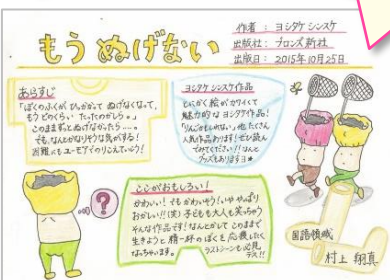 もう ぬげない
作者：ヨシタケ シンスケ
出版社：ブロンズ新社
出版日：2015年10月25日
あらすじ
「ぼくのふくが ひっかかって ぬげなくなって、
もうどのくらい たったのかしら。」
このままずっとぬげなかったら……。
でも、なんとかなりそうな気がする！
困難にもユーモアでのりこえていこう！
ヨシタケ シンスケ作品
とにかく絵がカワイくて
魅力的なヨシタケ作品！
『りんごかもしれない』他たくさん
人気作品あります！ぜひ読ん
でみてください!!
グッズもあります
ここがおもしろい！
かわいい！でもかわいそう！いや やっぱり
おかしい!!(笑)子どもも大人も笑っちゃう
そんな作品です！なんとかしてこのままで
生きようと精一杯のぼくを応援したく
なっちゃいます。
ラストシーンも必見
デス!!
?
国語領域
村上 翔真